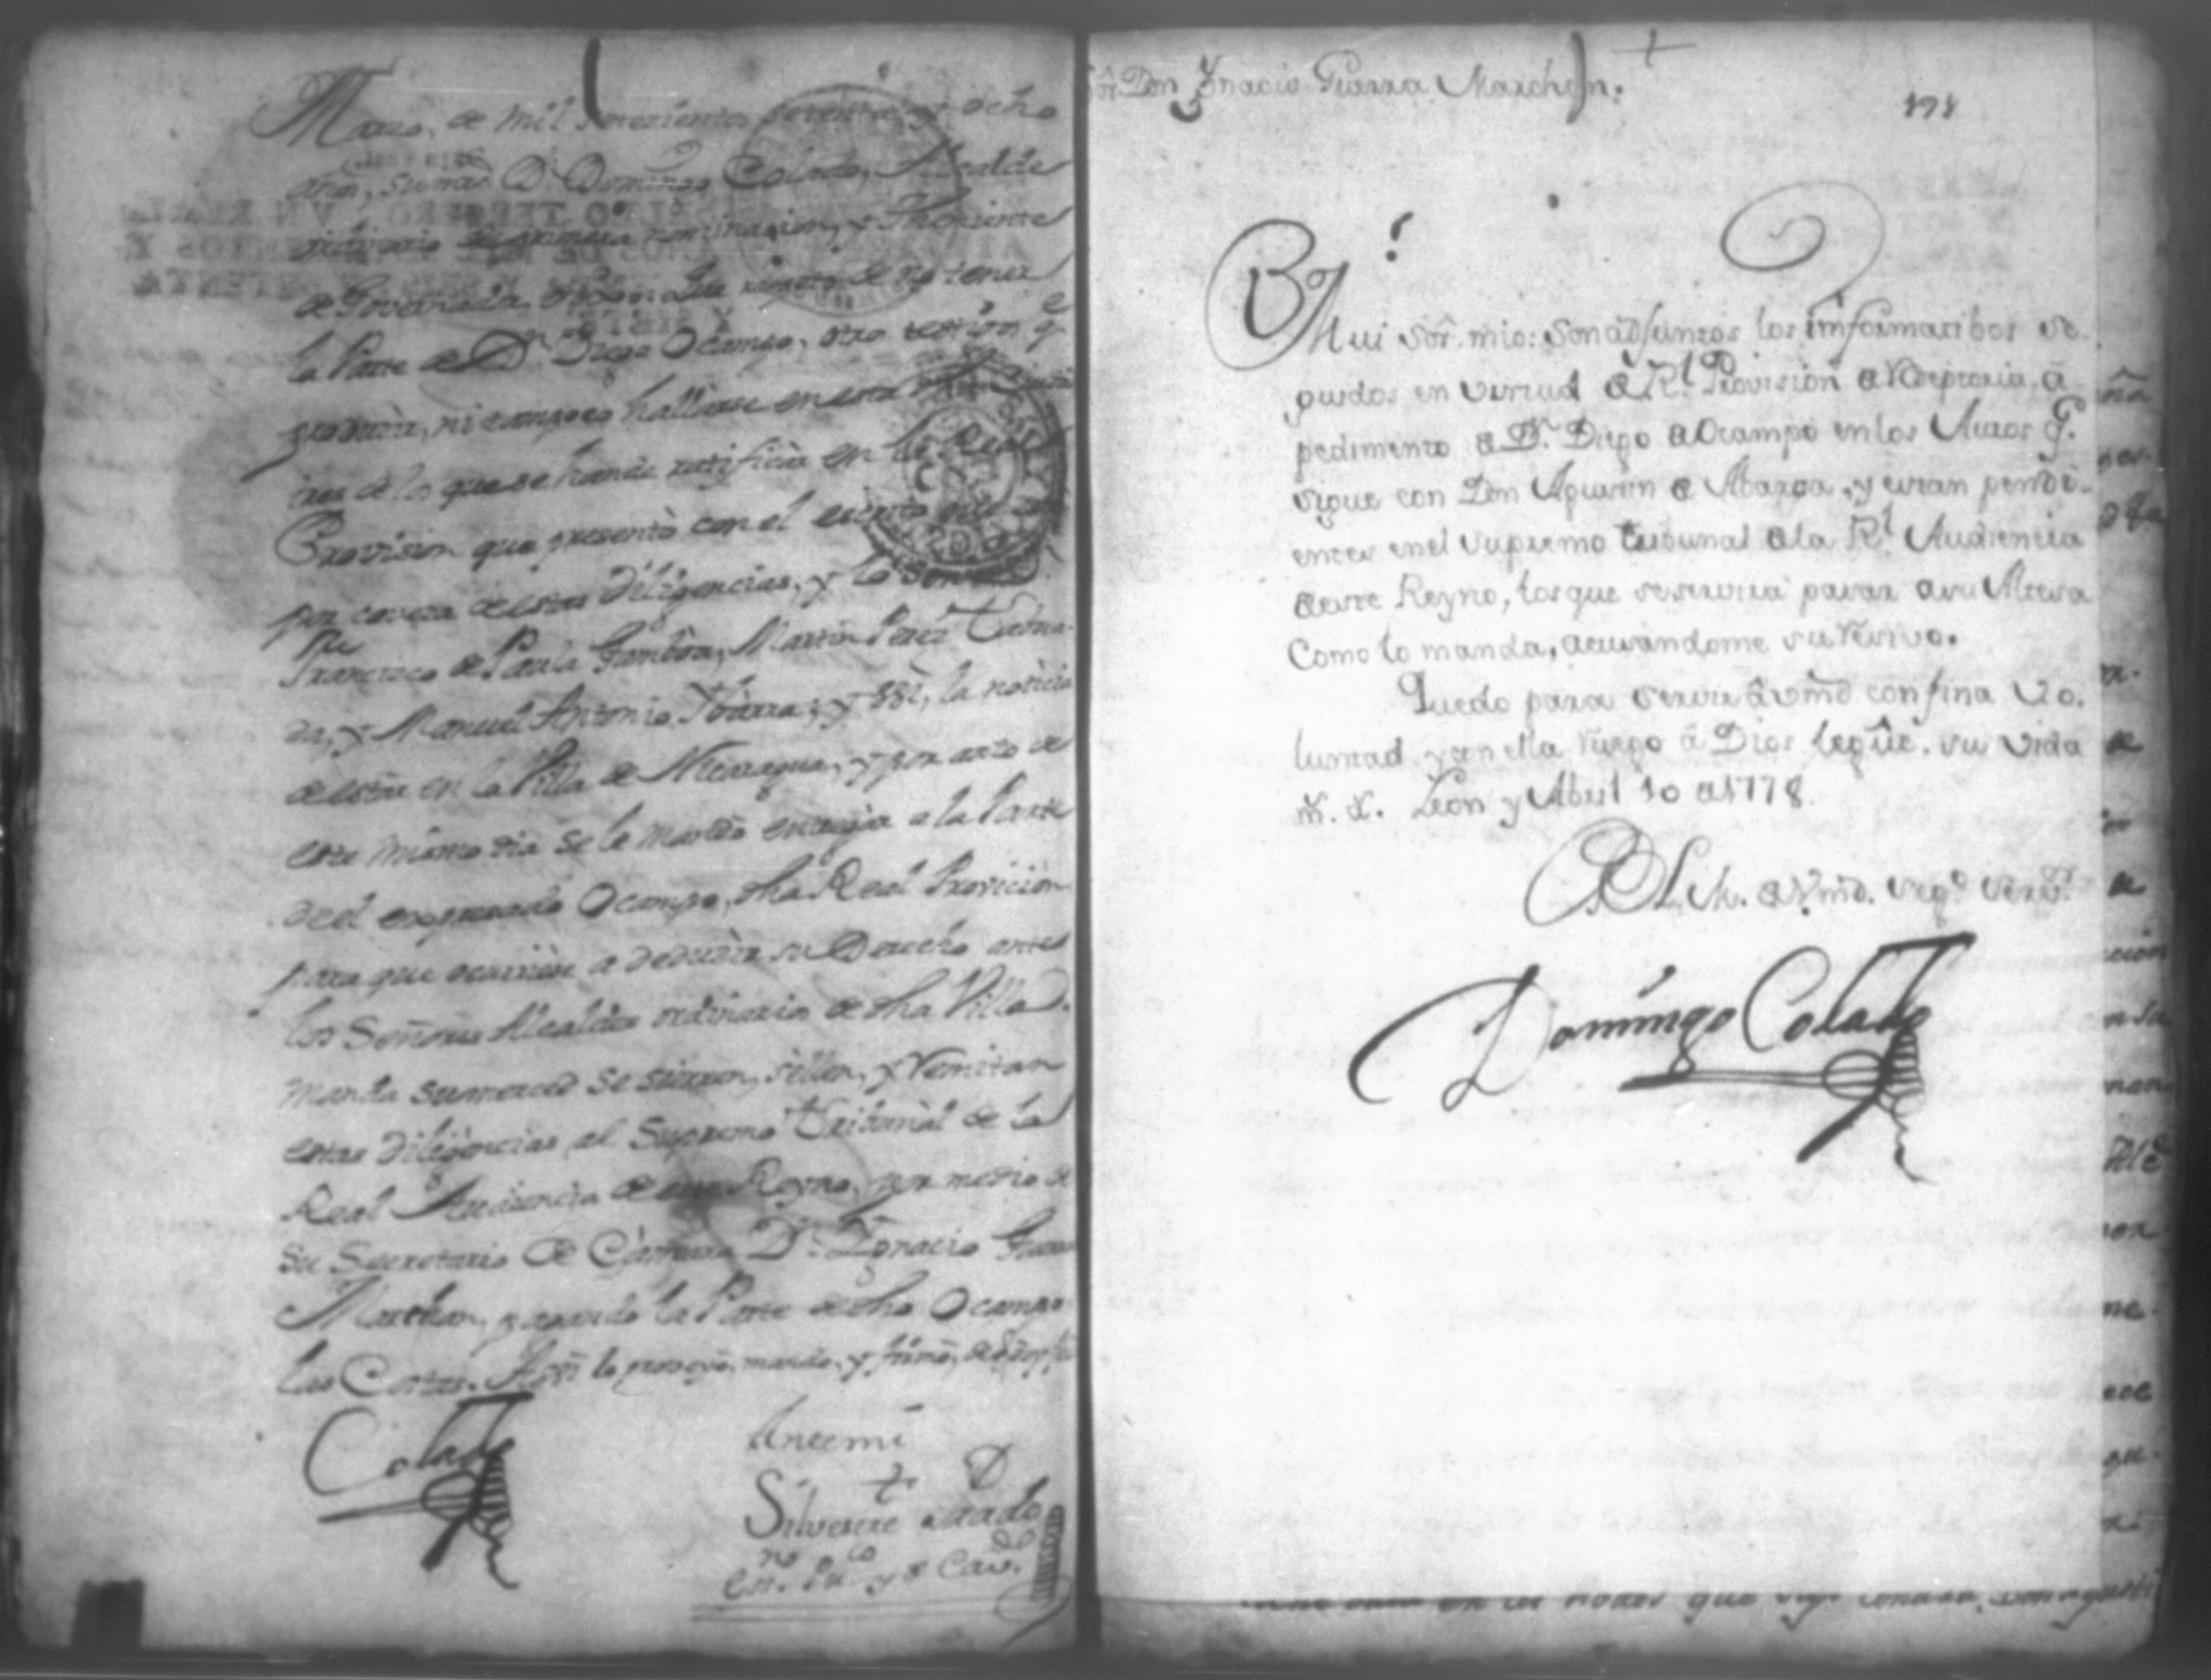 Marzo, de mil setecientos setenta, y ocho
años, su mrd. Dn. Domingo Colado, Alcalde
ordinario de primera nominacion, y Theniente
de Governador, Dixo: Que respecto de no tener
la Parte de Dn. Diego Ocampo, otro testigo qe.
producir, ni tampoco hallarse en esta
tres de los que se han de ratificar en la Real
Provision que presentò con el escrito que
por caveza de estas Diligencias, y lo son
Francisco de Paula Gamboa, Martin Perez
da, y Manuel Antonio Ybarra; y assi, la noticia
de estar en la Villa de Nicaragua, y por auto de
este mismo dia se le mandò entregar a la Parte
de el expresado Ocampo, dha Real Provicion
para que ocurriese a deducir su Derecho antes
los Señores Alcaldes ordinario de dha Villa.
manda su merced se sierren, sellen, y remitan
estas diligencias, al Supremo Tribunal de la
Real Audiencia de este Reyno, por medio de
su Secretario de Cámara Dn. Ygnacio Guerra
Marchan, pagando la Parte de dho Ocampo
las Costas. Assi lo proveyò, mandò, y firmò, de
Colado
Antemi
Silvestre
Esno. Puco. y de Cavdo.
Sor. Don Ygnacio Guerra Marchan.
171
Mui Sor. mio: Son adjuntos los imformatibos se-
guidos en virtud de Rl. Provision de Receptoria, á
pedimento de Dn. Diego de Ocampo en los Autos q.
sigue con Don Agustin de Abarca, y estan pendi-
entes en el Supremo tribunal de la Rl. Audiencia
de este Reyno, los que se servira pasar a su Alteza
Como lo manda, acusandome su resivo.
Quedo para servir á vmd con fina vo-
luntad y con ella ruego á Dios le gûe. su vida
ms. as. Leon y Abril 10 de 1778
B. L. M. de Vmd. segº. servr.
Domingo Colado
en los Autos que sige contra, Don Agusti